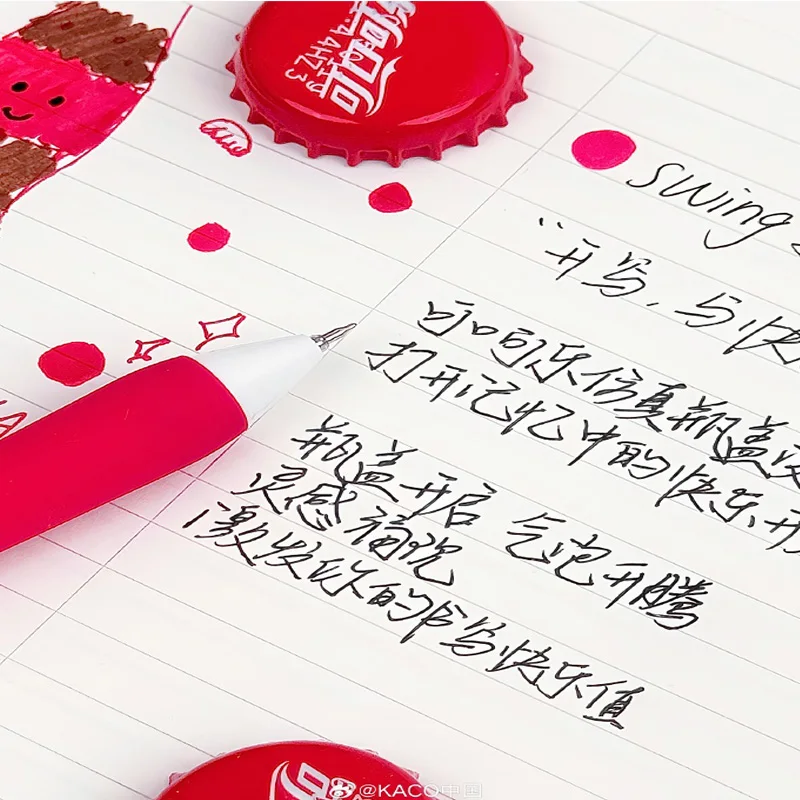 可口可
swing
“开写,与快
可口可乐仿真瓶盖设
打开记忆中的快乐开
瓶盖开启 气泡升腾
灵感涌现
激发你的书写快乐值
@KACO中国